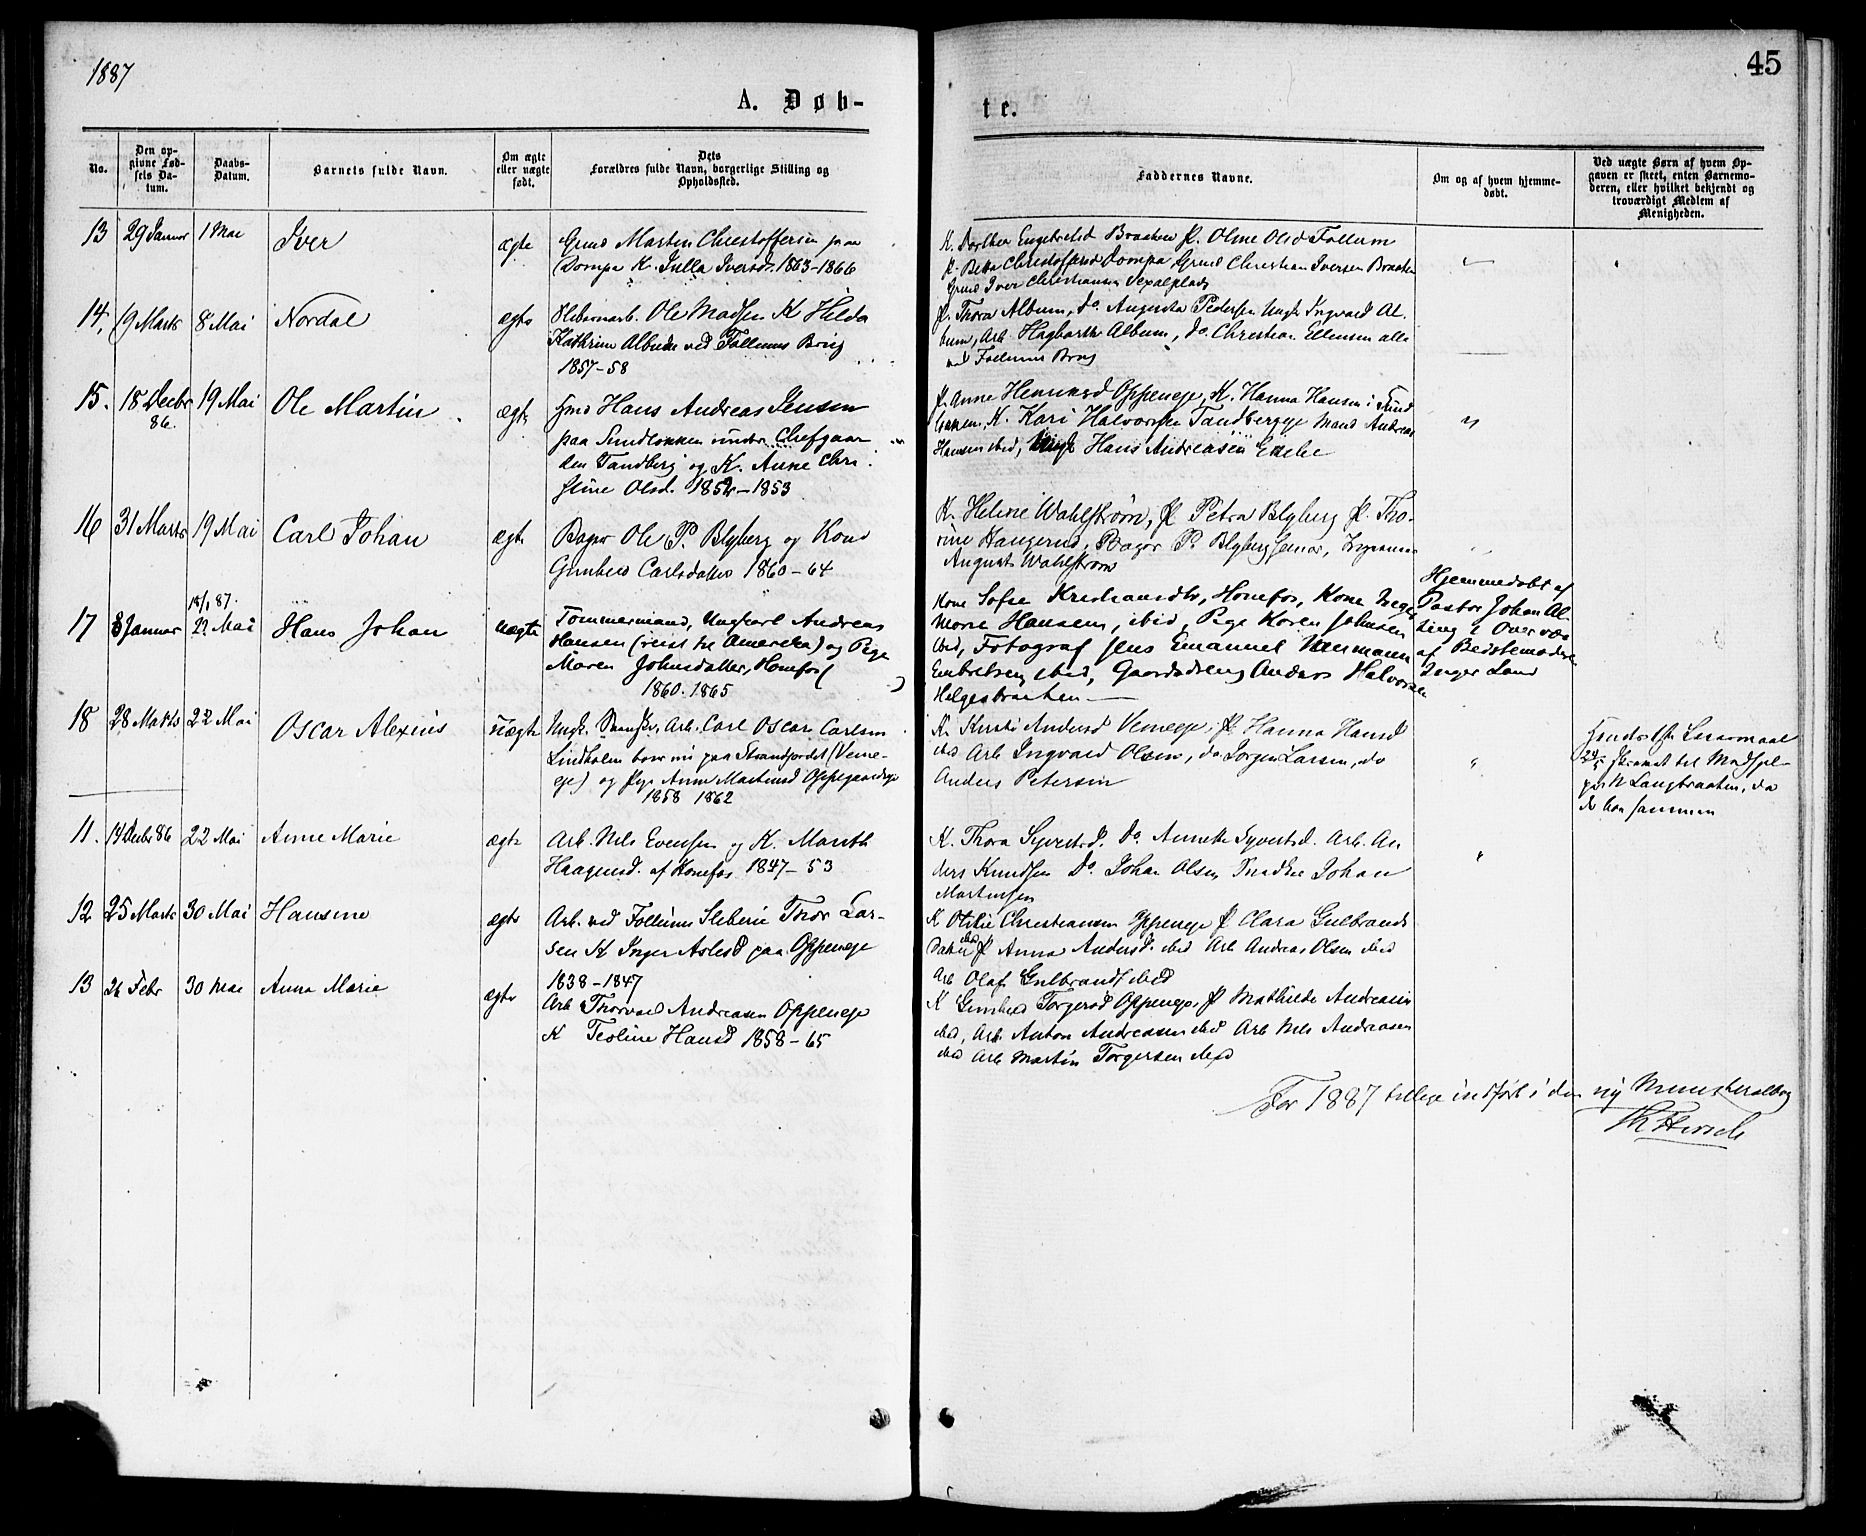 1887
45
A. Døb-
te.
No.
Den op-
givne Fød-
sels Da-
tum.
Daabs-
Datum.
Barnets fulde Navn.
Om ægte
eller uægte
født.
Dets
Forældres fulde Navn, borgerlige Stilling og
Opholdssted.
Faddernes Navne.
Om og af hvem hjemme-
døbt.
Ved uægte Børn af hvem Op-
gaven er skeet, enten Barnemo-
deren, eller hvilket bekjendt og
troværdigt Medlem af
Menigheden.
13 29 Januar 1 Mai Iver ægte Grmd Martin Christoffersen paa
Dompa K. Julla Iversd. 1863-1866
K. Dorthea Engebretsd Braaten P. Oline Olsd Follum
P. Betta Christoffersd Dompa, Grmd Christian Iversen Braaten
Grmd Iver Christiansen
14, 19 Marts 8 Mai Nordal ægte Sliberiarb. Ole Madsen K Hilda
Kathrine Album ved Follums Brug
1857-58
P. Thora Album, do. Augusta Pedersen Ungk Ingvald Al-
bum, Arb. Hagbarth Album, do. Christian Ellensen alle
ved Follums Brug
15. 18 Decbr 19 Mai Ole Martin ægte Hans Andreas Jensen
86.
paa under Chefgaar
den Tandberg og K. Anne Chri
stine Olsd. 1852-1853
P. Anne Henriksd Oppeneje, K. Hanna Hansen i
K. Kari Halvorsen Tandbergeje Mand Andreas
Hansen ibid, Ungk Hans Andreasen
16 31 Marts 19 Mai Carl Johan ægte Bager Ole P. Blyberg og Kone
Gunhild Carlsdatter 1860-64
K. Helene Wahlstrøm, P Petra Blyberg P. Tho-
rine Haugerud, Bager P. Blyberg Senior,
August Wahlstrøm
17 8 Januar 18/1 87.
22 Mai Hans Johan uægte Tømmermand, Ungkarl Andreas
Hansen (reist til Amerika) og Pige
Maren Johnsdatter, Hønefos
1860. 1865
Kone Sofie Kristiansdtr, Hønefos, Kone Inger
Marie Hansen, ibid, Pige Karen Johnsen
ibid, Fotograf Jens Emanuel
Enbretsen, ibid, Gaardsdreng Anders Halvorsen
Helgesbraaten
Hjemmedøbt af
Pastor Johan Al-
af Bedstemoder
Inger Lund
18 28 Marts 22 Mai Oscar Alexius uægte Ungk. Svensk, Arb. Carl Oscar Carlsen
Lindholm bor nu paa Strandjordet (Veme-
eje) og Pige Anne Martinsd Oppegaardseje
1858 1862
K. Kirsti Andersd Vemeeje, P. Hanna Hansd
ibid Arb Ingvald Olsen, do Jørgen Larsen, do
Anders Petersen
N Langbraaten, da
de bor sammen
11. 14 Decbr 86 22 Mai Anne Marie ægte Arb. Nils Evensen og K. Marith
Haagensd. af Hønefos 1847-53
K. Thora Syverts d. do. Annette Syvertsd. Arb. An
ders Knudsen do. Johan Olsen Johan
Martinsen
12 25 Marts 30 Mai Hansine ægte Arb. ved Follums Sliberie Thor Lar-
sen K Inger Aslesd paa Oppeneje
1838-1847
K Otilie Christiansen Oppeneje P Clara Gulbrands
datter ibid P Anna Andersd. ibid Arb Andreas Olsen ibid
Arb Olaf Gulbrands ibid
13 26 Febr 30 Mai Anna Marie ægte Arb Thorvald Andreasen Oppeneje
K Teoline Hansd 1858-65
K Gunhild Torgersd Oppeneje, P Mathilde Andreasen
ibid, Arb Anton Andreasen ibid Arb Nils Andreasen
ibid Arb Martin Torgersen ibid
For 1887 tillige indført i den ny Ministerialbog